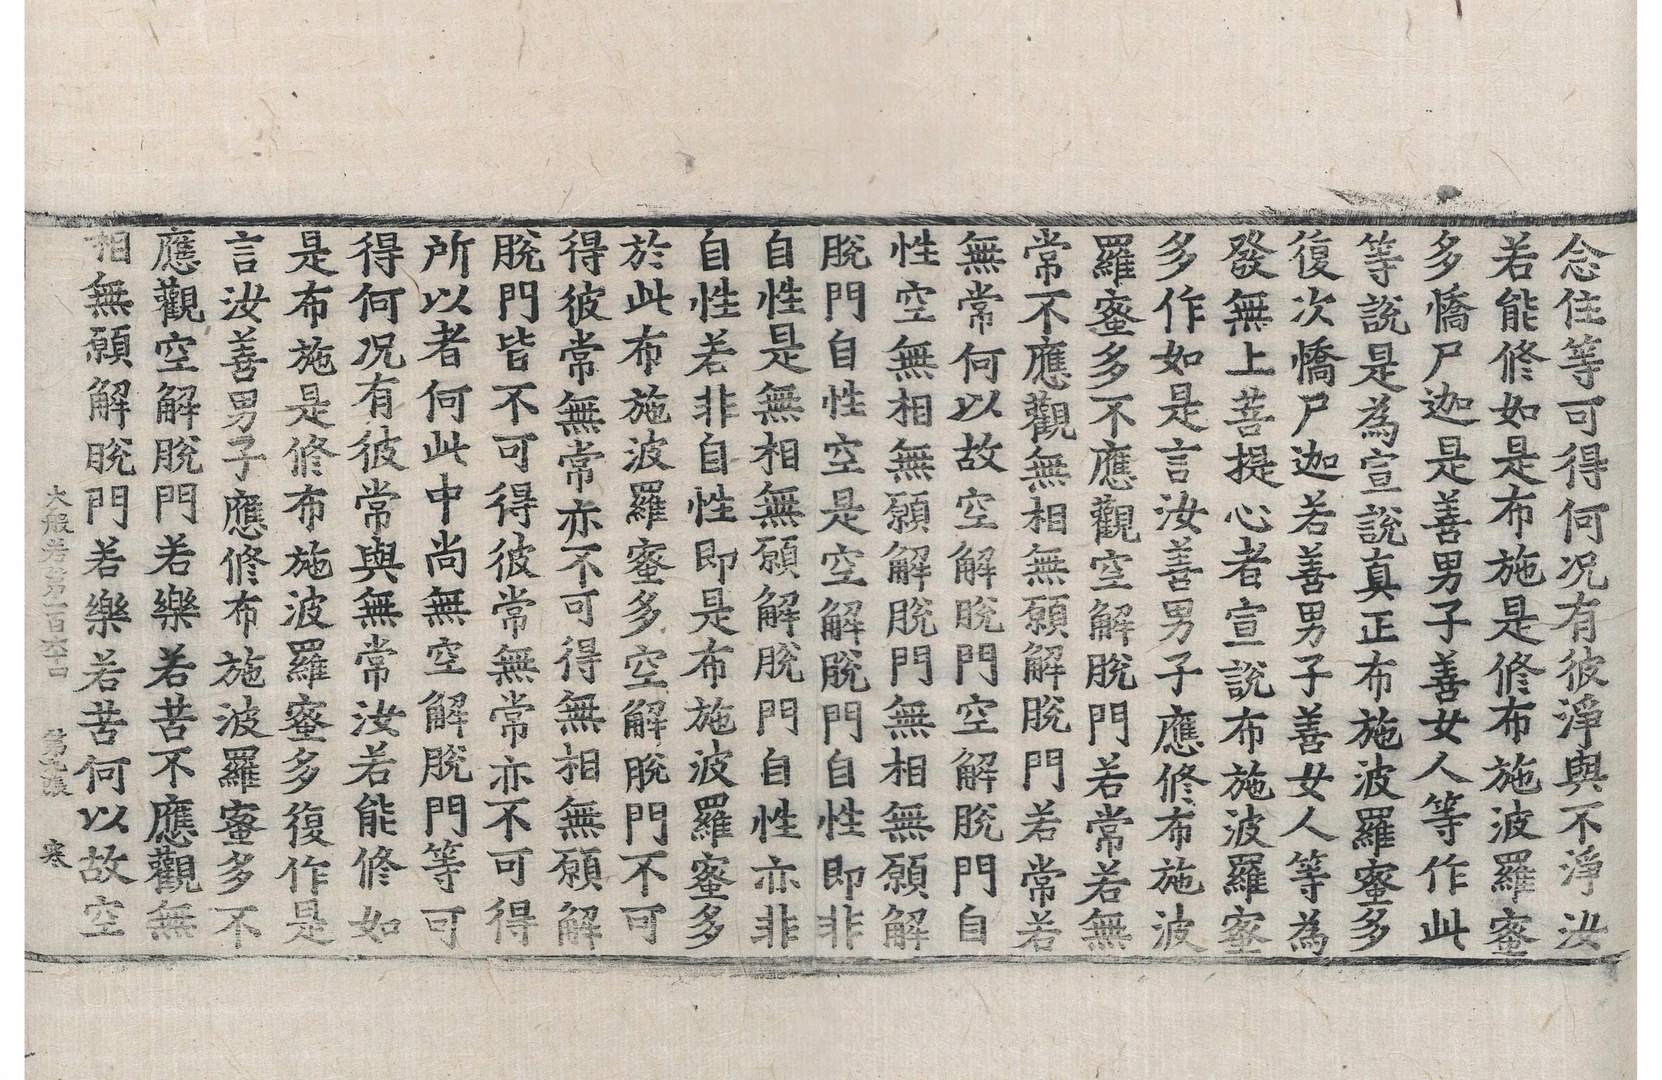 念住等可得何况有彼淨與不淨汝
若能修如是布施是修布施波羅蜜
多憍尸迦是善男子善女人等作此
等說是為宣說真正布施波羅蜜多
復次憍尸迦若善男子善女人等為
發無上菩提心者宣說布施波羅蜜
多作如是言汝善男子應修布施波
羅蜜多不應觀空解脫門若常若無
常不應觀無相無願解脫門若常若
無常何以故空解脫門空解脫門自
性空無相無願解脫門無相無願解
脫門自性空是空解脫門自性即非
自性是無相無願解脫門自性亦非
自性若非自性即是布施波羅蜜多
於此布施波羅蜜多空解脫門不可
得彼常無常亦不可得無相無願解
脫門皆不可得彼常無常亦不可得
所以者何此中尚無空解脫門等可
得何况有彼常與無常汝若能修如
是布施是修布施波羅蜜多復作是
言汝善男子應修布施波羅蜜多不
應觀空解脫門若樂若苦不應觀無
相無願解脫門若樂若苦何以故空
大般若第一百六十四 第九張 寒